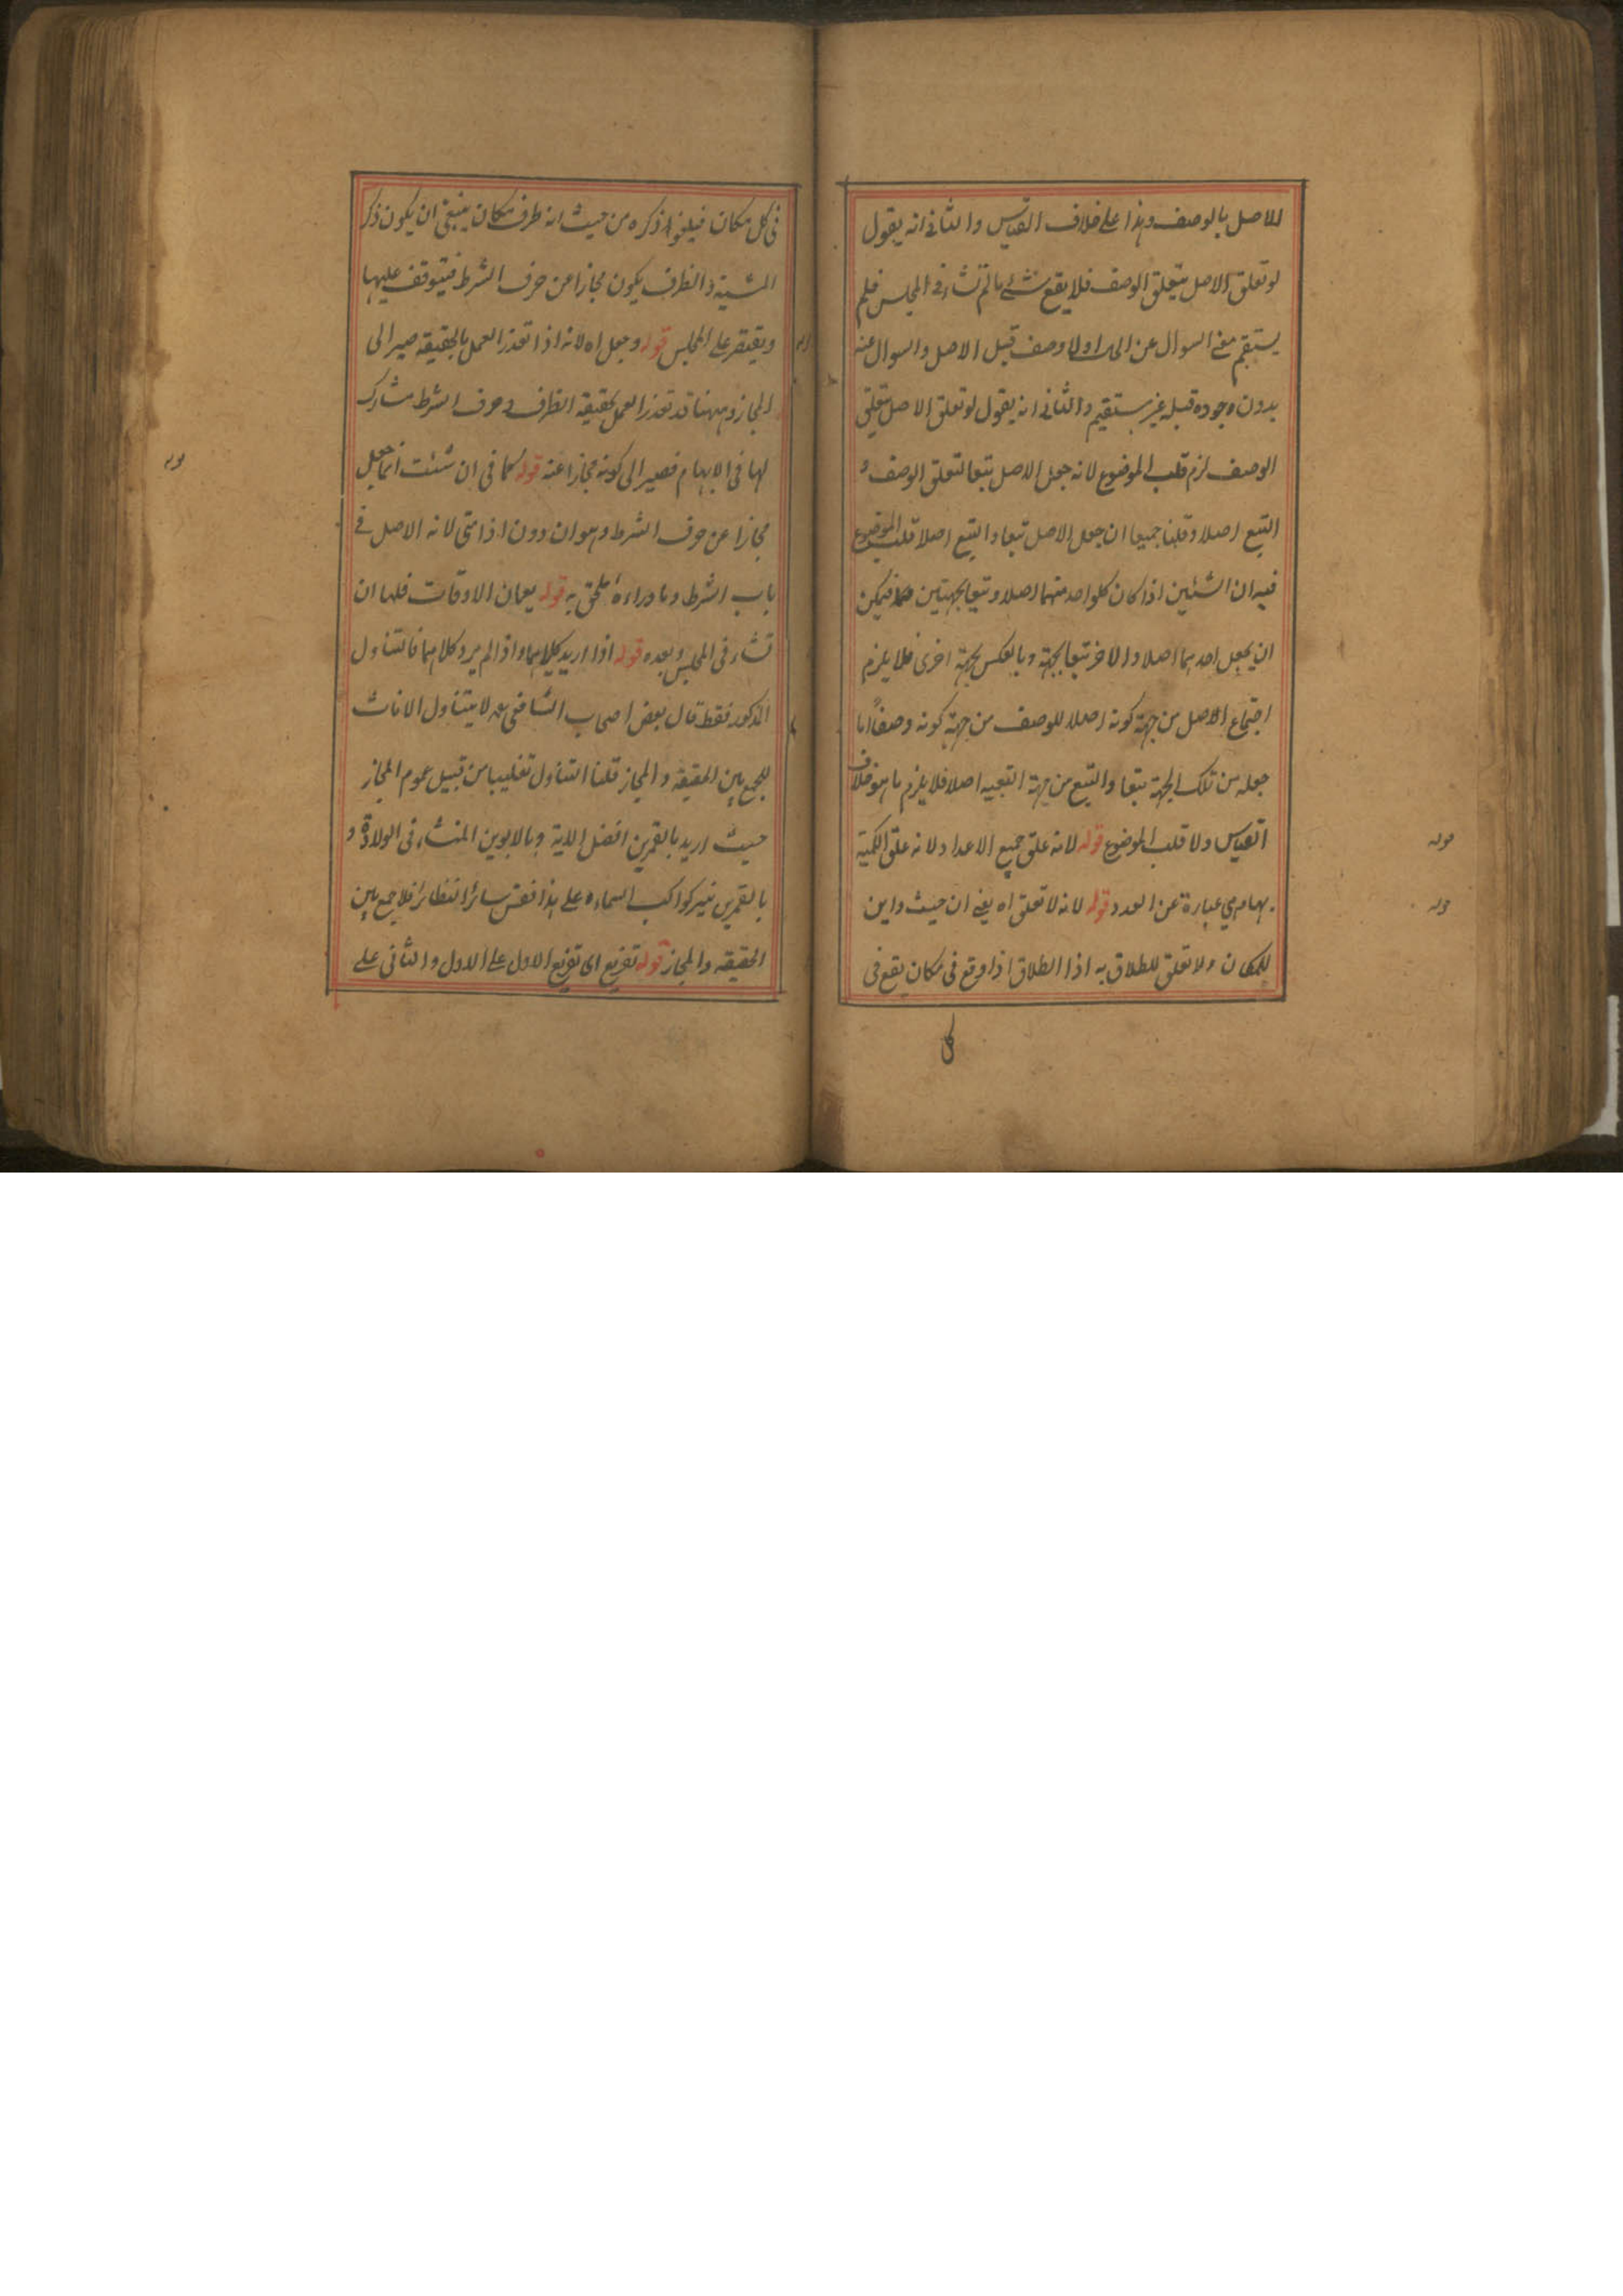 للاصل بالوصف وهذا على خلاف القياس والثانى انه يقول
لو تعلق الاصل بتعلق الوصف فلا يقع شئ ما لم تشاء فى المجلس فلم
يستقم معنى السوال عن الحال اولا وصف قبل الاصل والسوال عنه
بدون وجوده قبله غير مستقيم والثانى انه يقول لو تعلق الاصل بتعلق
الوصف لزم قلب الموضوع لانه جعل الاصل تبعا لتعلق الوصف و
التبع اصلا وقلنا جميعا ان جعل الاصل تبعا والتبع اصلا قلب الموضوع
فيه ان الشئين اذا كان كلواحد منهما اصلا وتبعا لجهتين فيمكن
ان يجعل احدهما اصلا والاخر تبعا لجهة وبالعكس لجهة اخرى فلا يلزم
اجتماع الاصل من جهة كونه اصلا للوصف من جهة كونه وصفا اما
جعله من تلك الجهة تبعا والتبع من جهة التبعيه اصلا فلا يلزم ما هو خلاف
القياس ولا قلب الموضوع قوله لانه علق جميع الاعداد لانه علق الكمية
بها وهى عبارة عن العدد قوله لانه لا تعلق اه يعنى ان حيث واين
للمكان ولا تعلق للطلاق به اذا الطلاق اذا وقع فى مكان يقع فى
كل
فى كل مكان فيلغوا ذكره من حيث انه ظرف مكان ينبغى ان يكون ذكر
المشية والظرف يكون مجازا عن حرف الشرط فيتوقف عليها
ويقتصر على المجلس قوله وجعل اه لانه اذا تعذر العمل بالحقيقه صير الى
المجاز وههنا قد تعذر العمل بحقيقة الظرف وحرف الشرط مشارك
لها فى الابهام فصير الى كونه مجازا عنه قوله كما فى ان شئت انما جعل
مجازا عن حرف الشرط وهو ان دون اذا متى لانه الاصل فى
باب الشرط وما وراءه ملحق به قوله يعمان الاوقات فلها ان
تشاء فى المجلس وبعده قوله اذا اريد كلاهما واذا لم يرد كلاهما فالتناول
المذكور فقط قال بعض اصحاب الشافعى رحمه لا يتناول الاناث
للجمع بين الحقيقة والمجاز قلنا التناول تغليبا من قبيل عموم المجاز
حيث اريد بالقمرين وبالابوين المنشاء فى الولادة و
بالقمرين نير كواكب السماء وعلى هذا فقس سائر النظائر فلا جمع بين
الحقيقة والمجاز قوله تفريع اى تفريع الاول على الاول والثانى على
قوله
قوله
قوله